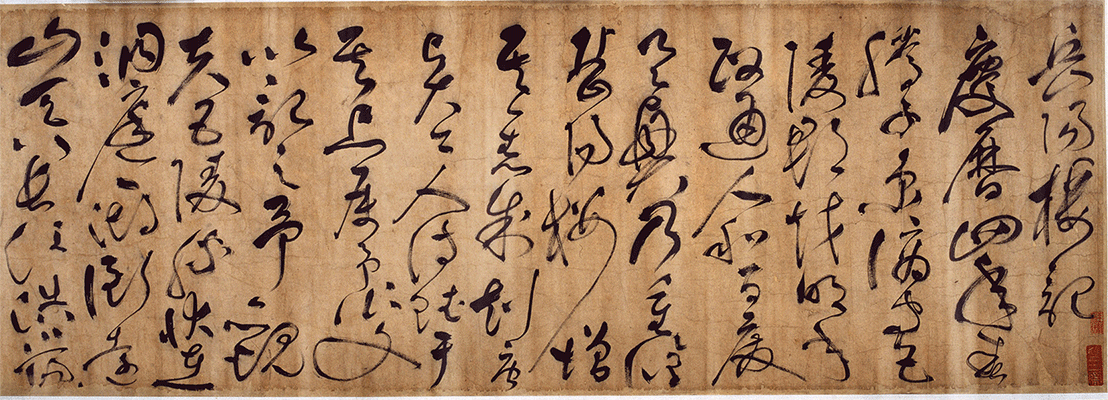 岳陽樓記
慶曆四年春
滕子京謫守巴
陵郡越明年
政通人和百廢
具興乃重修
岳陽樓增
其舊制刻唐
賢今人詩賦于
其上屬予作文
以記之予觀
夫巴陵勝狀在
洞庭一湖銜遠
山吞長江浩浩湯